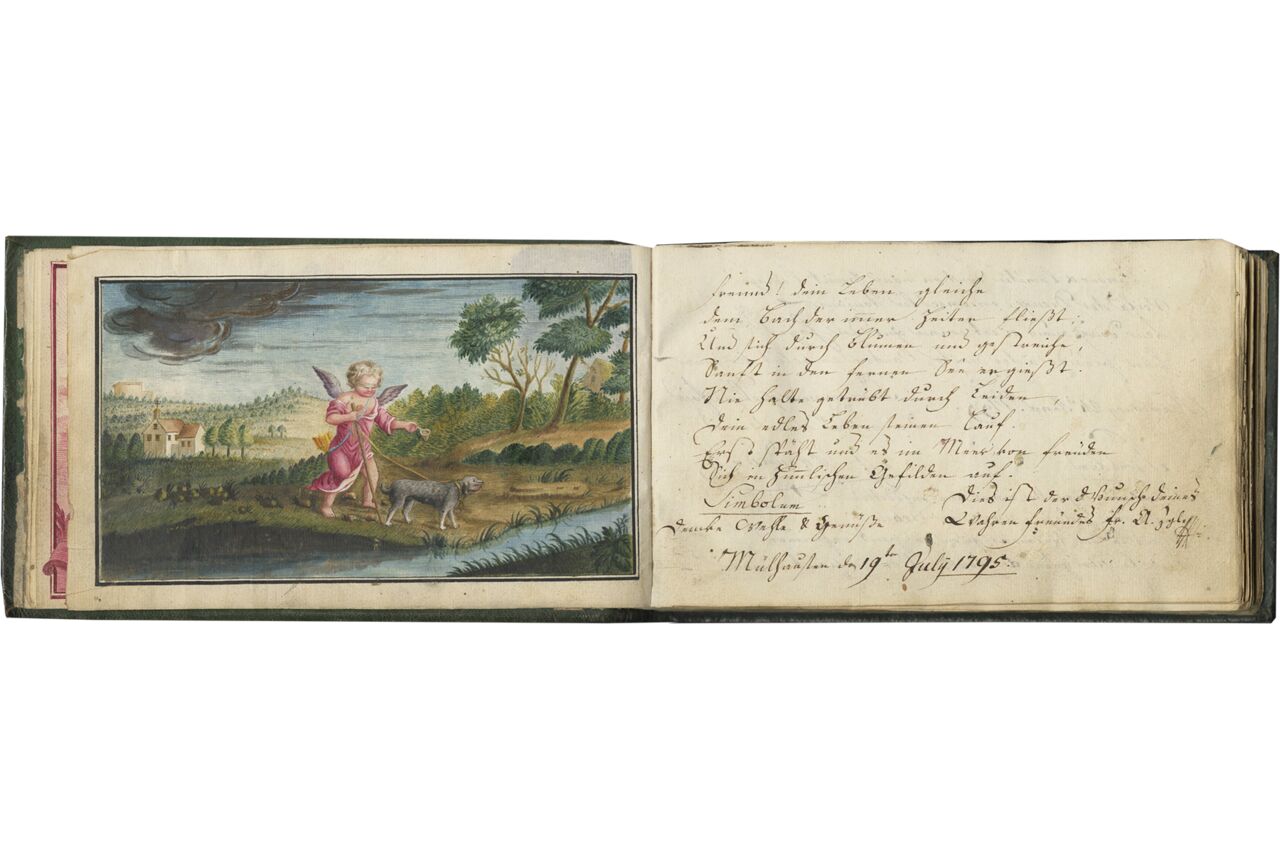 Freünd! dein Leben gleiche
dem Bach der im̅er heiter fließt.
Und sich durch Blumen und gesträuche,
Sanft in den fernen See ergießt.
Nie halte getrübt durch Leiden,
Dein edles Leben seinen Lauf.
Erst späht und es im Meer von freüden
Sich in Him̅lischen Gefilden auf.
Simbolum
Denke Wehle & Genüße
Dies ist der Wunsch deines
Wahren freündes Fr.
Mülhausen de 19te Julÿ 1795.